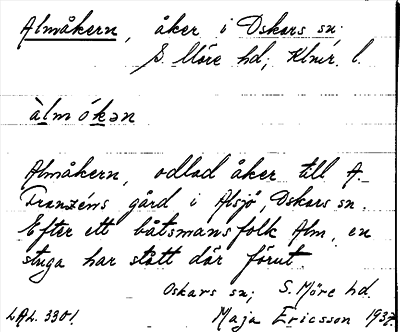 Almåkern, åker i Oskars sn.
S. Möre hd; Klmr. l.
àlmókən
Almåkern, odlad åker till A.
Franzéns gård i Alsjö, Oskars sn.
Efter ett båtsmansfolk Alm, en
stuga har stått där förut.
Oskars sn; S. Möre hd.
LAL. 3301. Maja Ericsson 1937.